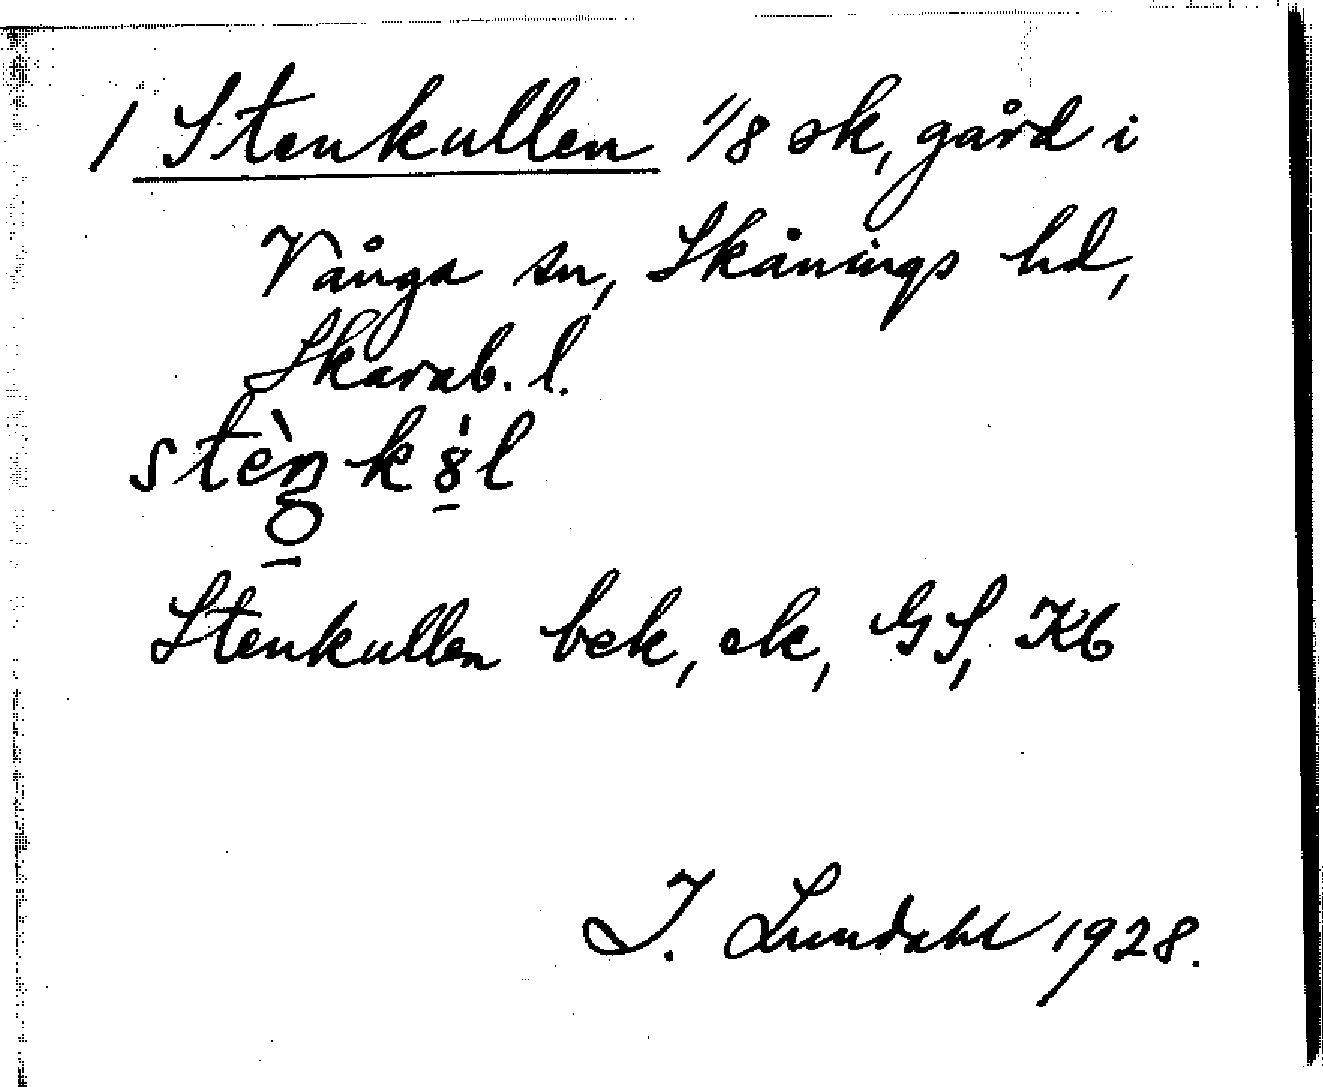 1 Stenkullen 1/8 sk, gård i
Vånga sn, Skånings hd,
Skarab. l.
Stenkullen bek, ek, GS, Kb
I. Lundahl 1928.